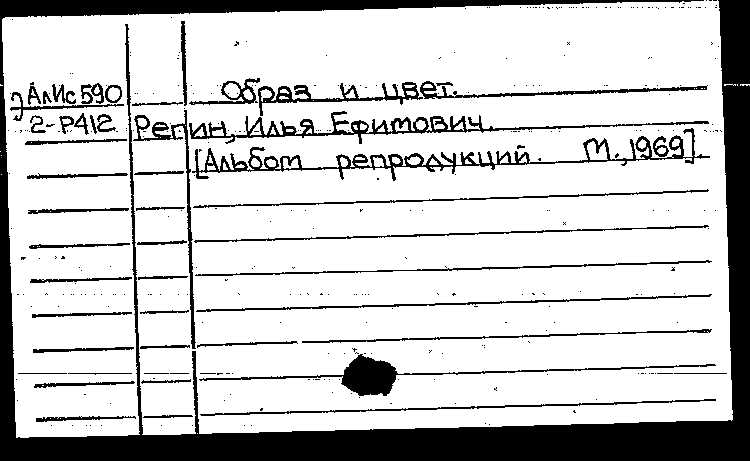 АлИс590 Образ и цвет.
2-Р412 Репин, Илья Ефимович.
[Альбом репродукций. М., 1969].